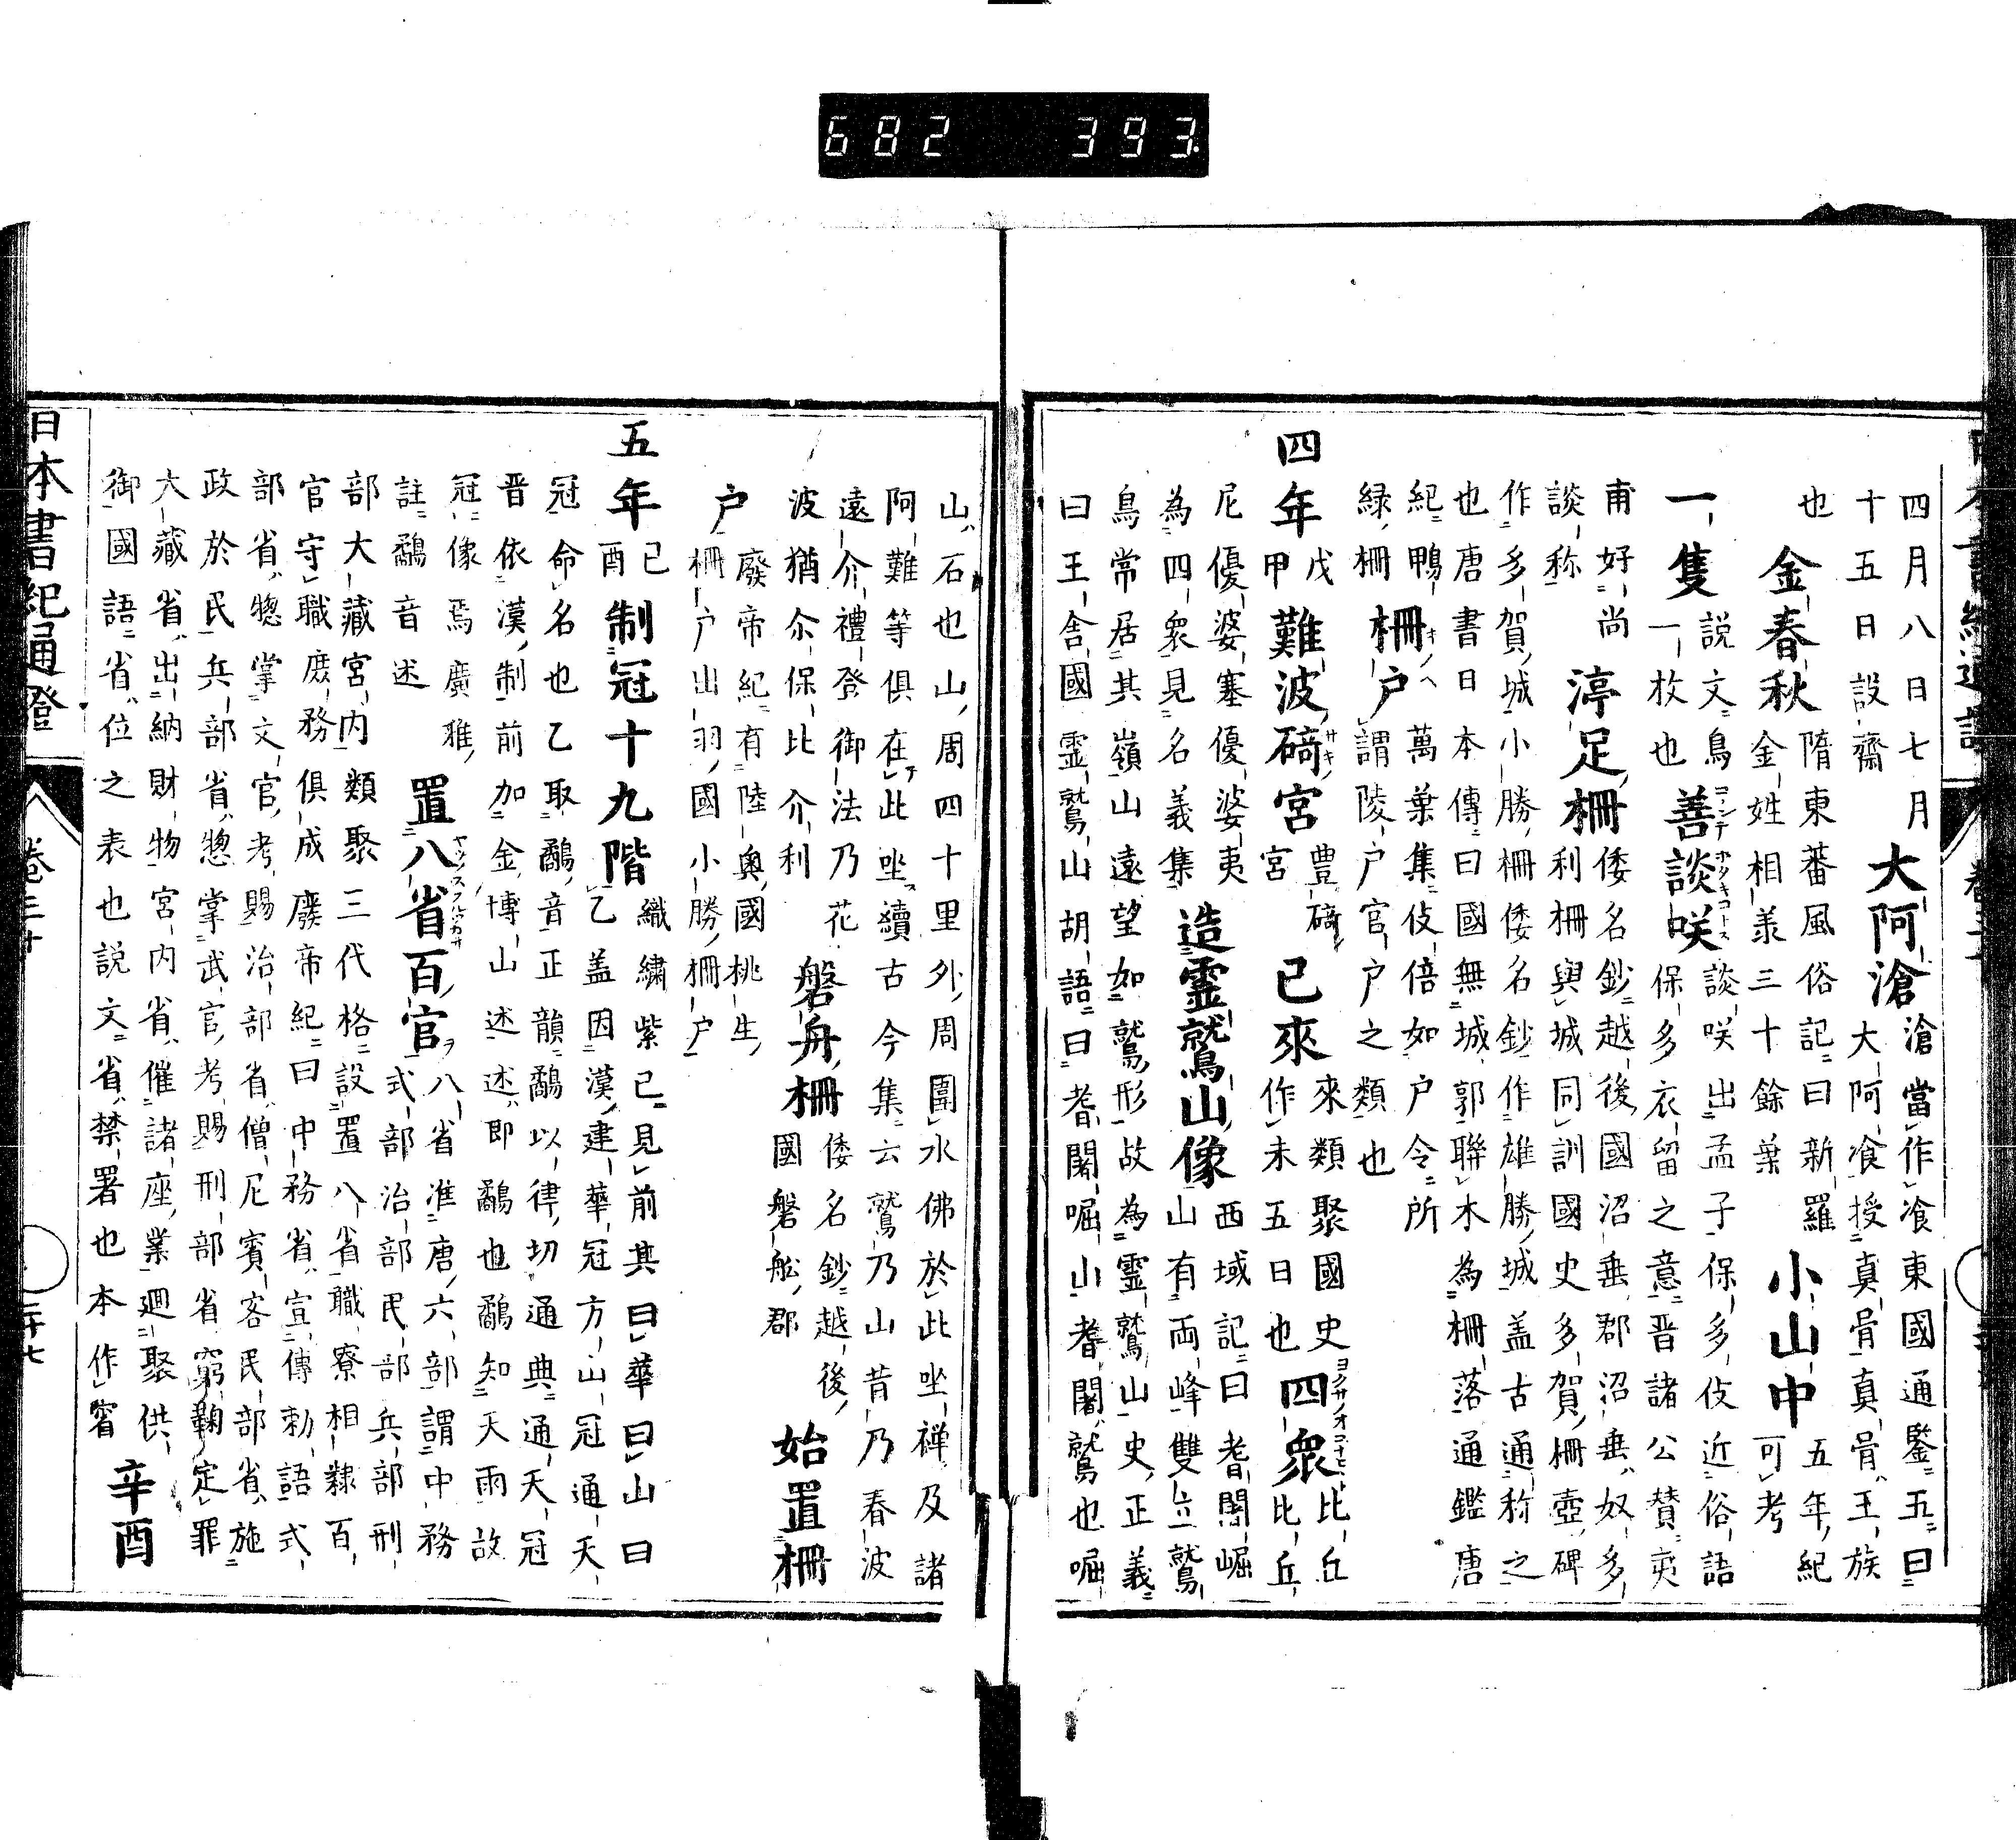 682 393
四月八日七月大阿滄滄當作飡東國通鑒五曰
十五日設齋大阿飡授真骨真骨王族
也金春秋隋東蕃風俗記曰新羅小山中五年紀
金姓相羕三十餘葉可考
一隻説文鳥善談咲談咲出孟子保多伎近俗語
一枚也保多衣留之意晋諸公賛夷
甫好尚渟足柵倭名鈔越後國沼垂郡沼垂奴多
談称利柵與城同訓國史多賀柵壺碑
作多賀城小勝柵倭名鈔作雄勝城盖古通称之
也唐書日本傳曰國無城郭聯木為柵落通鑑唐
紀鴨柵戸萬葉集伎倍如户令所
緑柵謂陵户官户之類也
四年戊甲難波碕宮豊碕宮已來來類聚國史作未五日也四衆比丘比丘
尼優婆塞優婆夷造霊鷲山像西域記曰耆闍崛
為四衆見名義集山有両峰雙立鷲
鳥常居其嶺山遠望如鷲形故為霊鷲山史正義
曰王舎國霊鷲山胡語曰耆闍崛山耆闍鷲也崛
山石也山周四十里外周圍水佛於此坐禅及諸
阿難等俱在此坐續古今集云鷲乃山昔乃春波
遠介禮登御法乃花磐舟柵倭名鈔越後始置柵
波猶尒保比介利國磐舩郡
户廢帝紀有陸奥國桃生
柵户出羽國小勝柵户
五年己酉制冠十九階織繍紫已見前其曰華曰山曰
乙盖因漢建華冠方山冠通天
冠命名也乙取鷸音正韻鷸以律切通典通天冠
晋依漢制前加金博山述述即鷸也鷸知天雨故
冠像焉廣雅置八省百官八省准唐六部謂中務
註鷸音述式部治部民部兵部刑
部大藏宮内類聚三代格設置八省職寮相隷百
官守職庶務俱成廢帝紀曰中務省宣傳勅語式
部省惣掌文官考賜治部省僧尼賓客民部省施
政於民兵部省惣掌武官考賜刑部省窮鞫定罪
大藏省出納財物宮内省催諸座業廻聚供辛酉
御國語省位之表也説文省禁署也本作㝭
日本書紀通證
卷三十
三十七